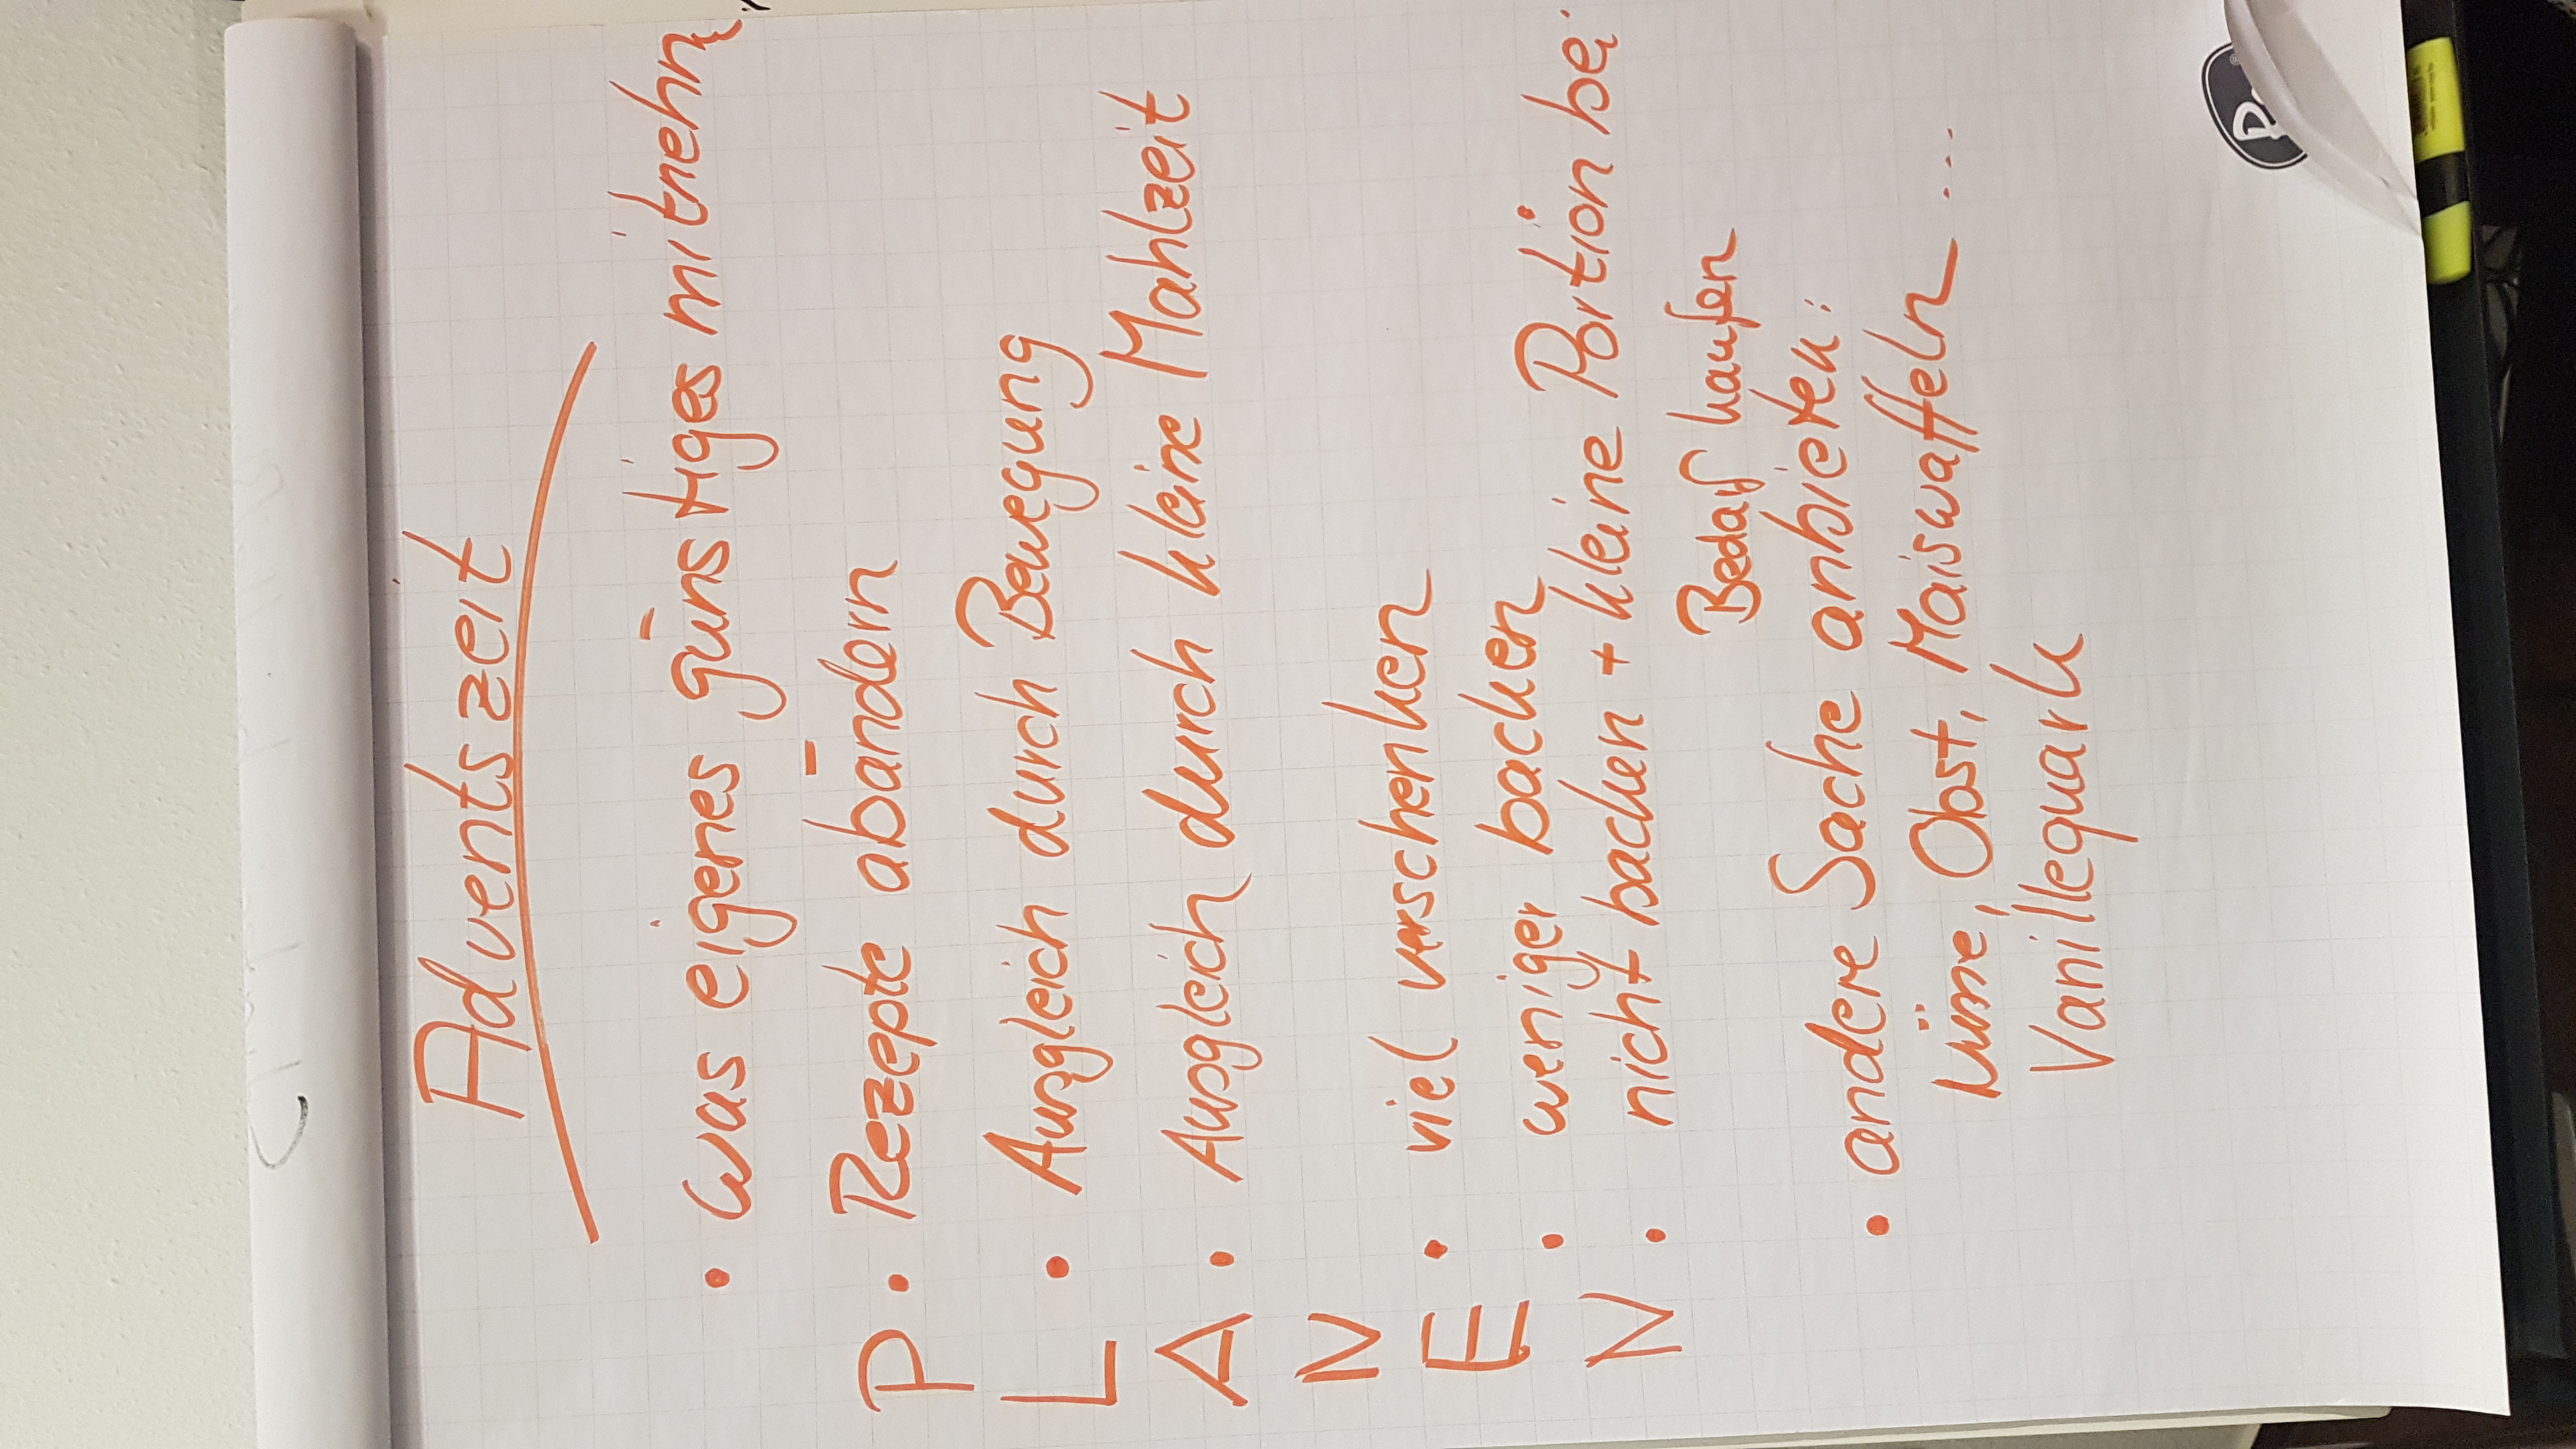 Adventszeit
• was eigenes günstiges mitnehm
P • Rezepte abändern
L • Ausgleich durch Bewegung
A • Ausgleich durch kleine Mahlzeit
N
E • viel verschenken
• weniger backen
N • nicht backen + kleine Portion bei
Bedarf kaufen
• andere Sache anbieten:
Obst, Maiswaffeln ....
Vanillequark